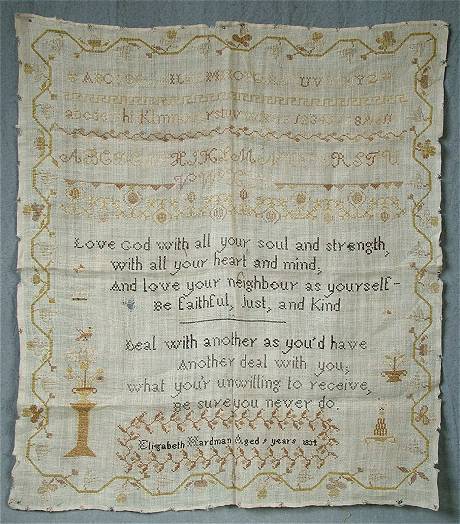 A H M O U V Y
abcdefghiklmn rstuv
ABC HIKLM RSTU
Love God with all your soul and strength,
with all your heart and mind,
And love your neighbour as yourself-
Be faithful, Just, and Kind
Deal with another as you'd have
Another deal with you;
what you'r unwilling to receive,
Be sure you never do.
Elizabeth Hardman Aged years